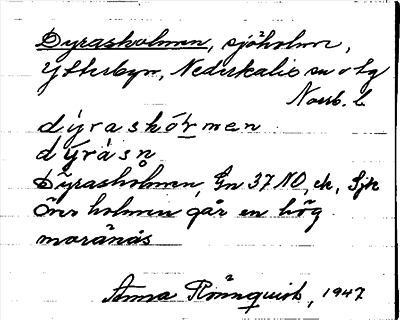 Dyrasholmen, sjöholme,
Ytterbyn, Nederkalix sn o tg
Norrb. l.
dýraskó̂rmen
dýrasn̥
Dyrasholmen, Gn 37 NO, ek, Sjk
över holmen går en hög
moränås
Anna Rönnquist, 1947